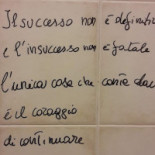 Il successo non è definitivo
e l'insuccesso non è fatale
l'unica cosa che conta davvero
è il coraggio
di continuare